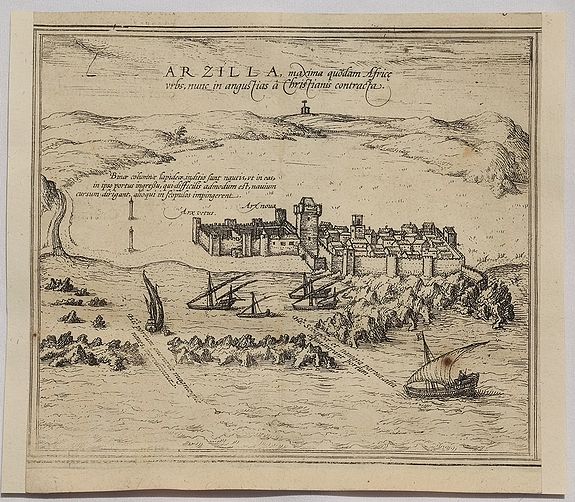 ARZILLA, maxima quōdam Africę
vrbs, nunc in angustias à Christianis contracta.
Binæ columnæ lapideæ, inditio sunt nautis, vt in eas,
in ipso portus ingressu, qui difficilis admodum est, nauium
cursum dirigant, alioqui in scopulos impingerent.
Arx noua
Arx vetus.